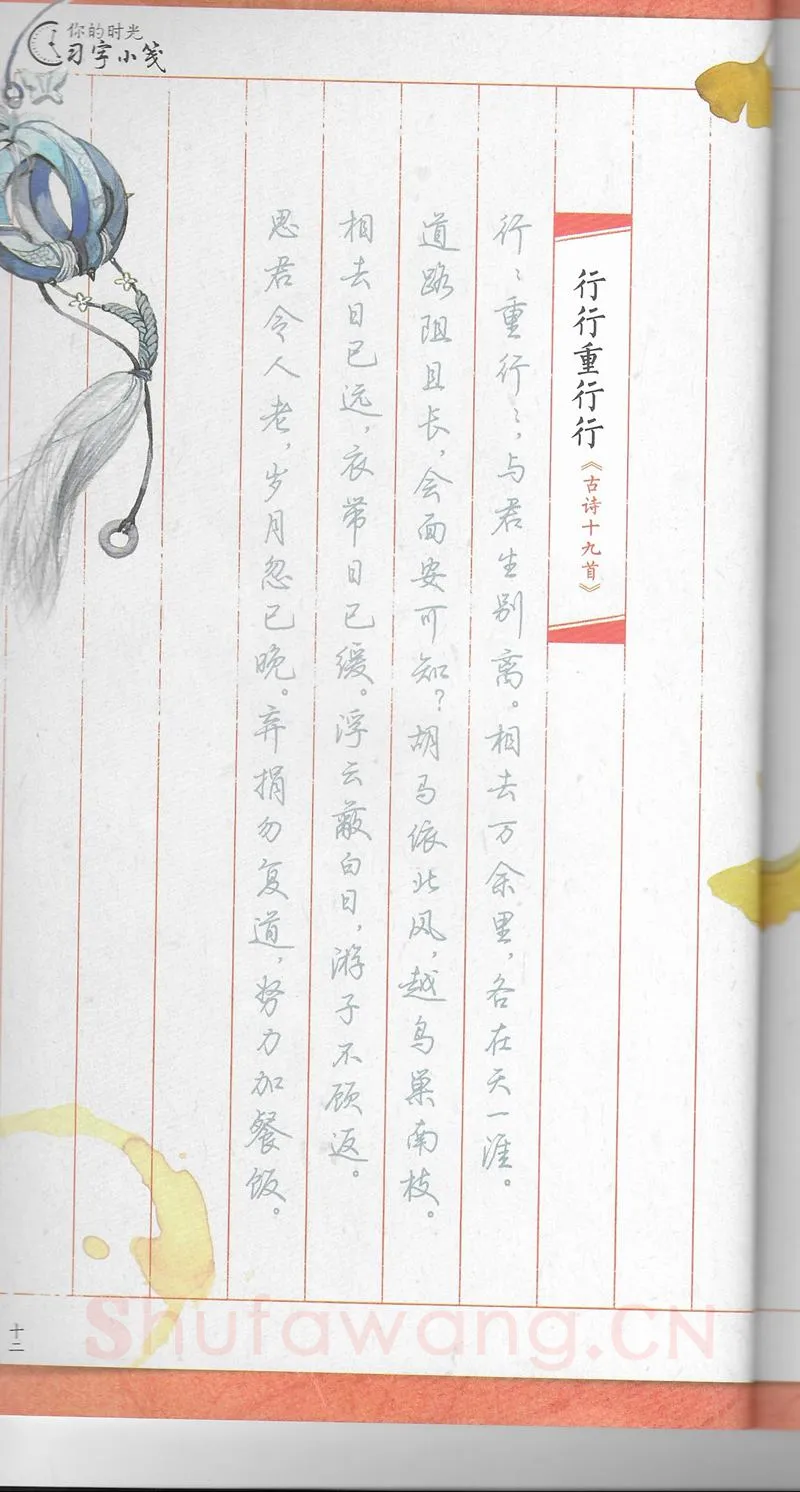 你的时光
习字小笺
行行重行行
《古诗十九首》
行〻重行〻，与君生别离。相去万余里，各在天一涯。
道路阻且长，会面安可知？胡马依北风，越鸟巢南枝。
相去日已远，衣带日已缓。浮云蔽白日，游子不顾返。
思君令人老，岁月忽已晚。弃捐勿复道，努力加餐饭。
十二
Shufawang.CN